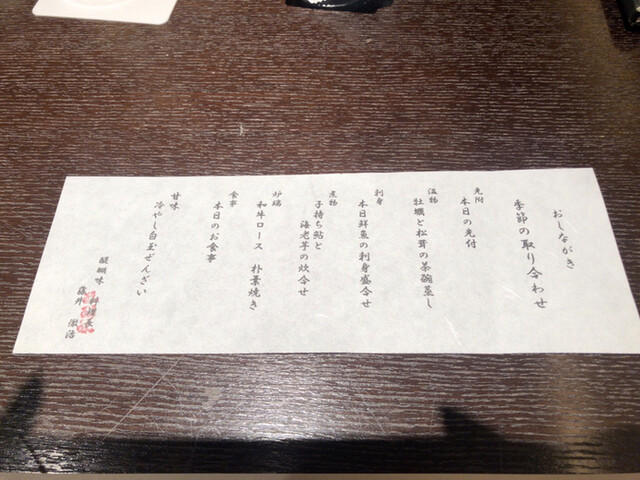 おしながき
季節の取り合わせ
先附
本日の先付
温物
牡蠣と松茸の茶碗蒸し
刺身
本日鮮魚の刺身盛合せ
煮物
子持ち鮎と
海老芋の炊合せ
炉端
和牛ロース 朴葉焼き
食事
本日のお食事
甘味
冷やし白玉ぜんざい
醍醐味
料理長